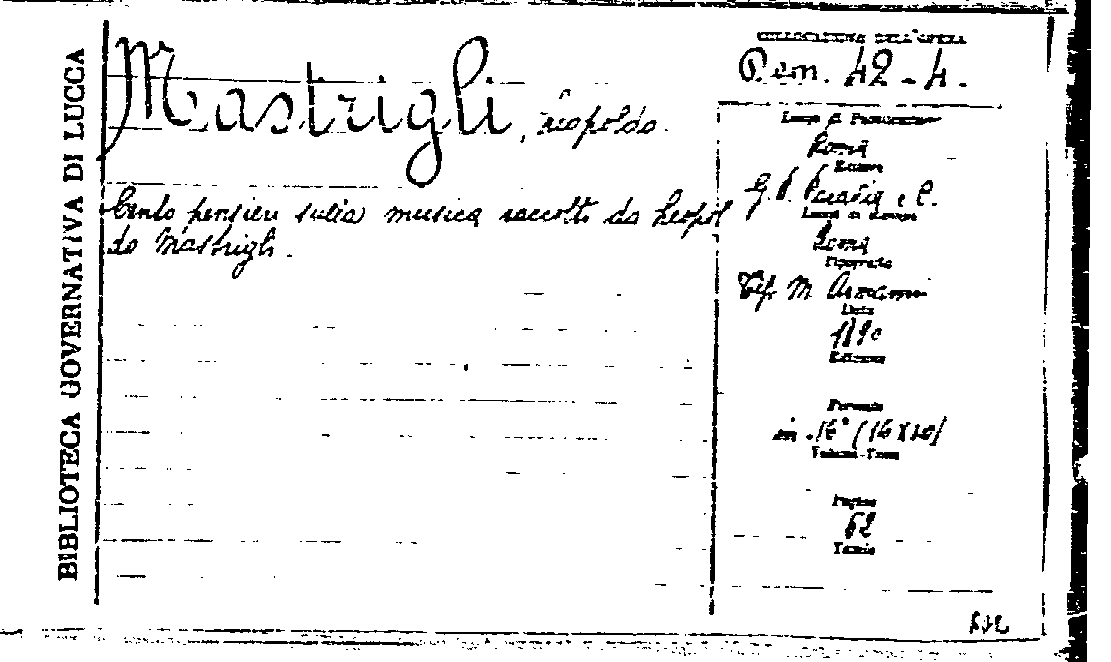 BIBLIOTECA GOVERNATIVA DI LUCCA
Mastrigli, Leopoldo.
Cento pensieri sulla musica raccolti da Leopol
do Mastrigli.
COLLOCAZIONE DELL'OPERA
Pem. 42-4.
Luogo di Pubblicazione
Roma
Editore
G. B. Paravia e C.
Luogo di stampa
Roma
Tipografo
Tip. M. Armanni
Data
1890
Edizione
Formato
in.16° (16X10)
Volume-Tomo
Pagine
62
Tavole